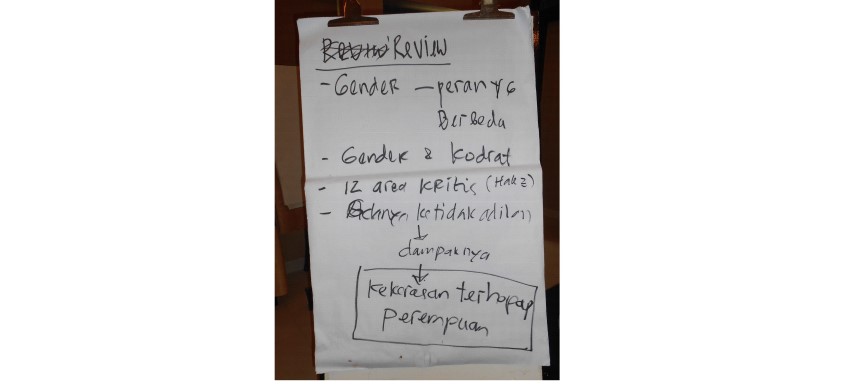 Review
- Gender — peran yg
Berbeda
- Gender & kodrat
- 12 area kritis (Hak2)
- Adanya ketidakadilan
↓
dampaknya
↓
Kekerasan terhadap
perempuan